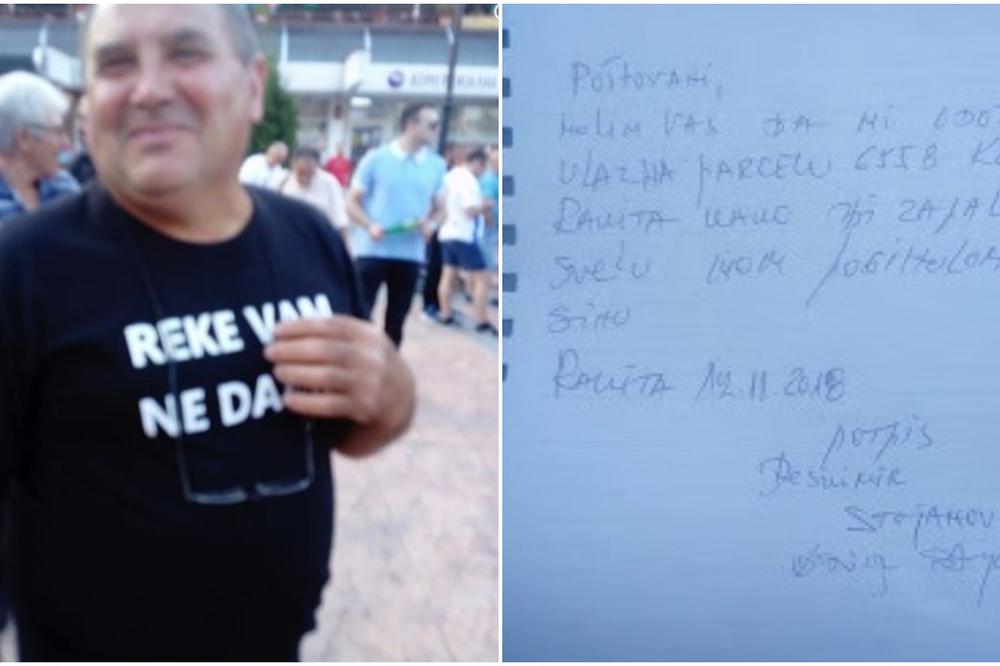 КОМЕРЦИЈАЛНА
REKE VAM
NE DA
Poštovani,
MOLIM VAS DA MI ODO
ULAZ NA PARCELU 6558 K
RAKITA KAKO BI ZAPAL
SVEĆU MOM POGINULOM
SINU
RAKITA 12.11.2018
POTPIS
Desimir
STOJANOV